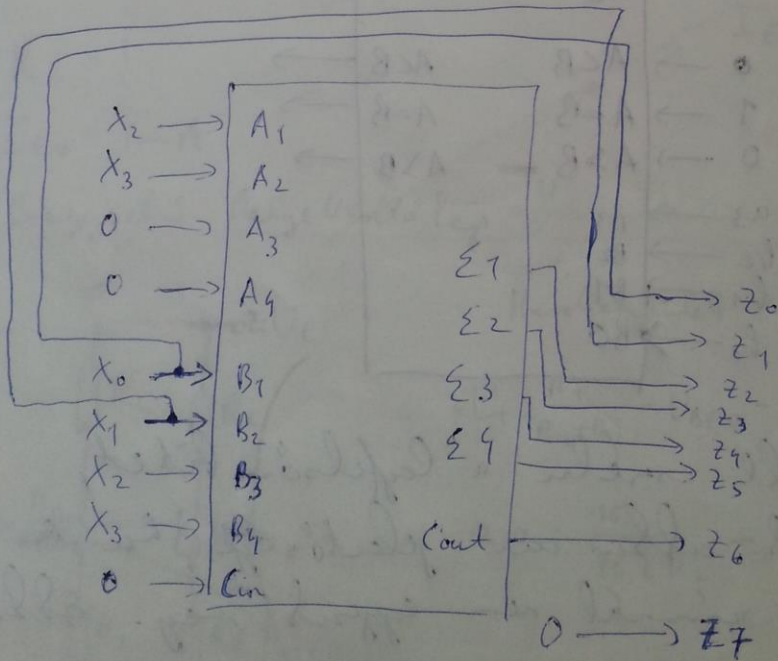 X₂ → A₁
X₃ → A₂
0 → A₃
0 → A₄
X₀ → B₁
X₁ → B₂
X₂ → B₃
X₃ → B₄
0 → Cin
Σ1
Σ2
Σ3
Σ4
Cout
→ Z₀
→ Z₁
→ Z₂
→ Z₃
→ Z₄
→ Z₅
→ Z₆
0 → Z7